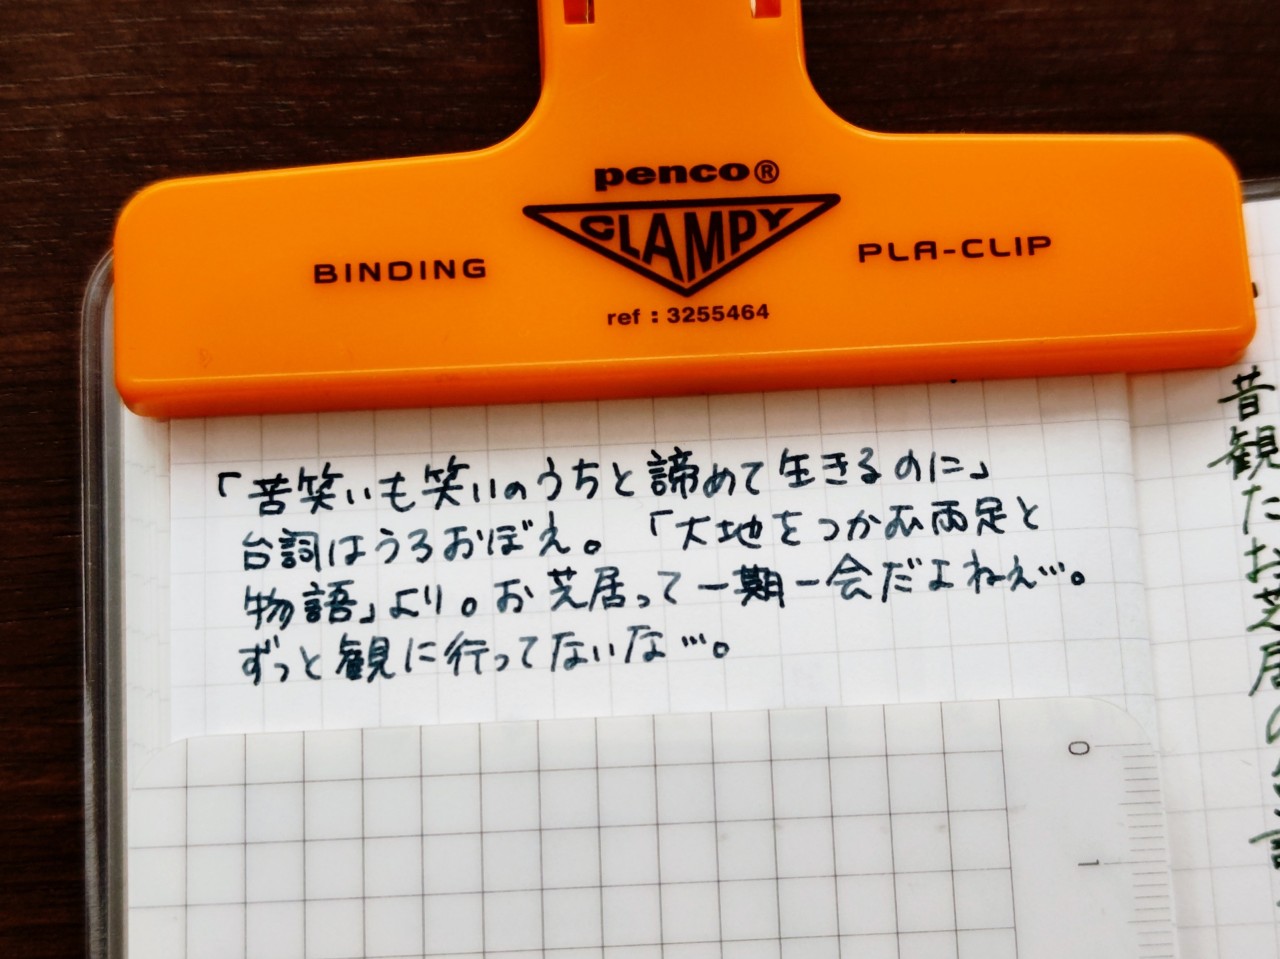 penco®
CLAMPY
BINDING
PLA-CLIP
ref : 3255464
「苦笑いも笑いのうちと諦めて生きるのに」
台詞はうろおぼえ。「大地をつかむ両足と
物語」より。お芝居って一期一会だよねぇ…。
ずっと観に行ってないな…。
0
1
昔観たお芝居の